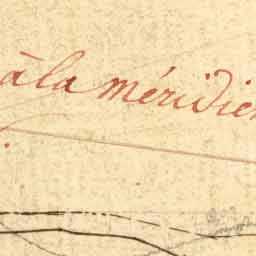 à la méridien